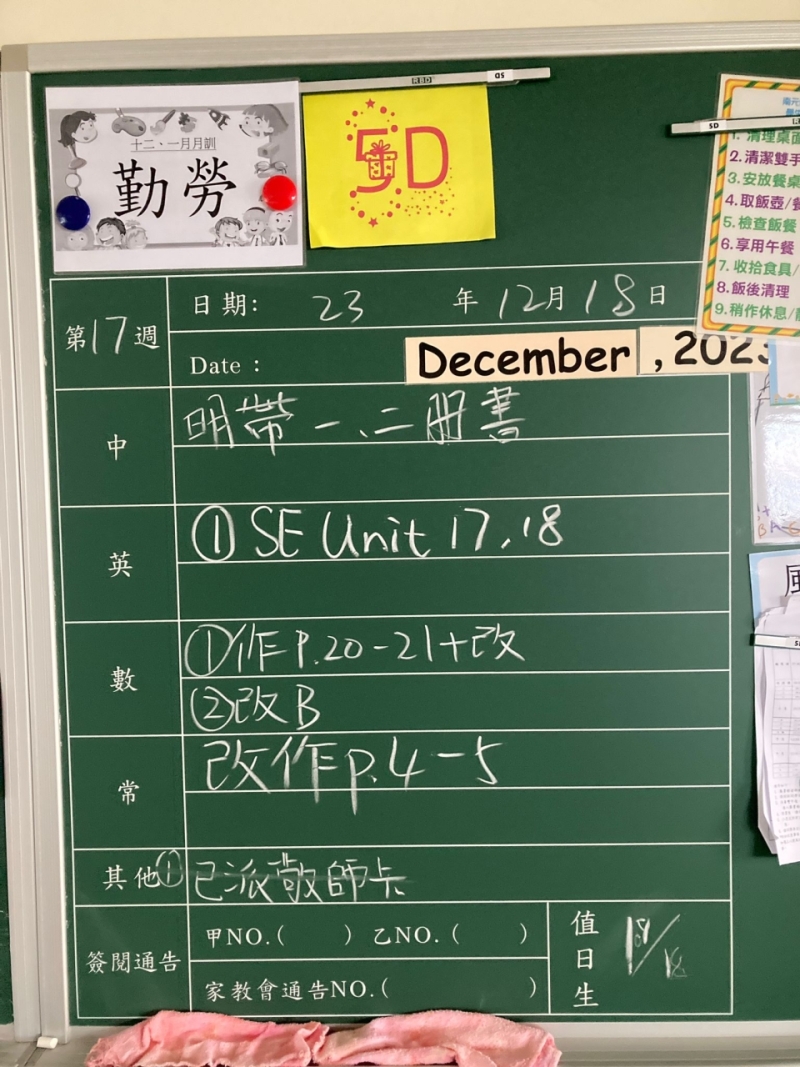 KBD SD
十二、一月月訓
勤勞
5D
SD
1. 清理桌面
2. 清潔雙手
3. 安放餐桌
4. 取飯壺/
5. 檢查飯餐
6. 享用午餐
7. 收拾食具/
8. 飯後清理
9. 稍作休息/
第17週
日期: 23 年 12月 18日
Date :
December , 2023
中
明帶一、二冊書
英
① SE Unit 17, 18
數
①作P.20-21+改
②改B
常
改作p.4-5
其他① 已派敬師卡
簽閱通告
甲NO.( ) 乙NO.( )
家教會通告NO.( )
值日生
風